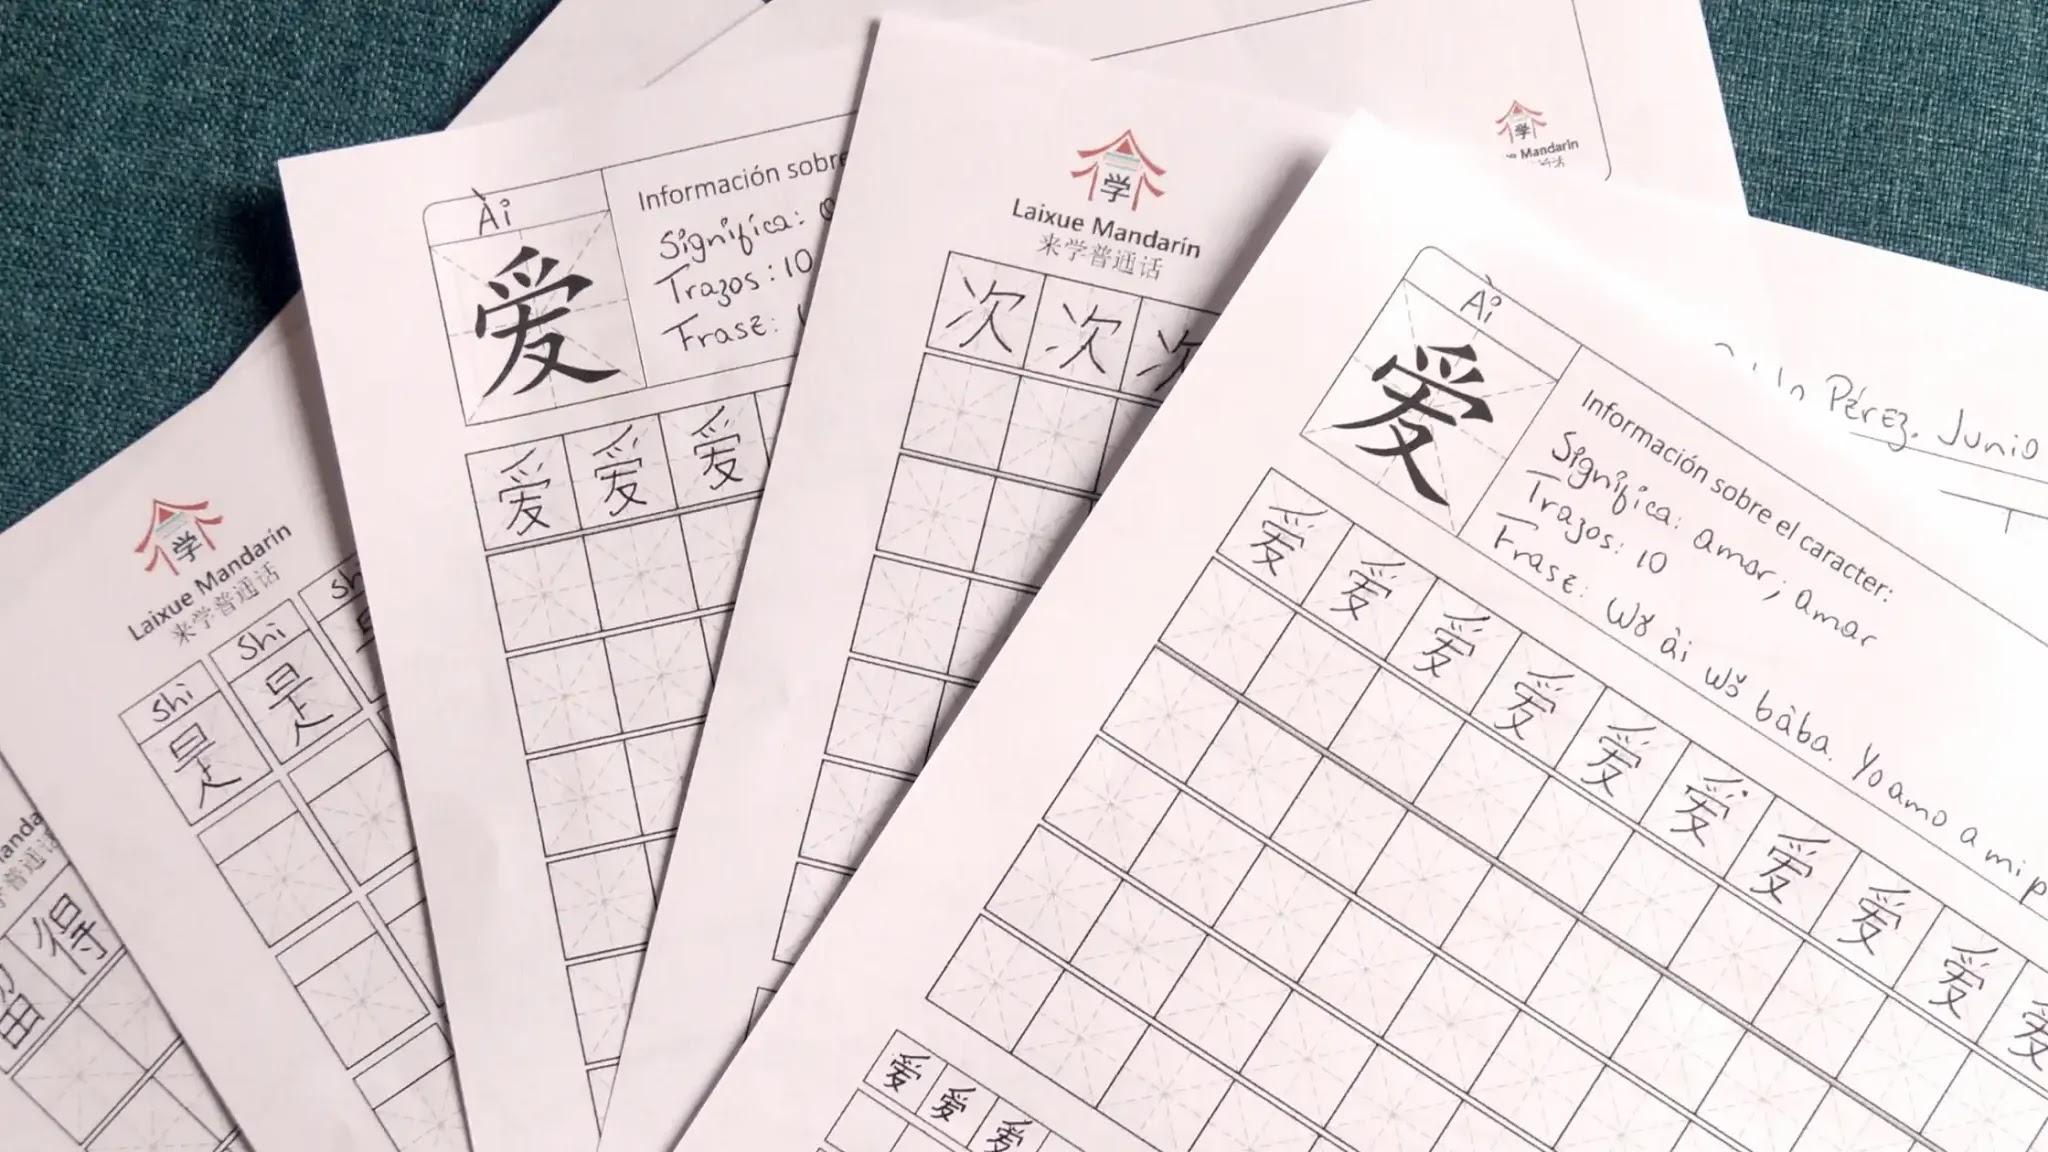 学
Laixue Mandarín
来学普通话
shi shi sh
是 是
anda
普通话
得
Ài
爱
Información sobre
Significa:
Trazos: 10
Frase:
爱 爱 爱
学
Laixue Mandarín
来学普通话
次 次 次
学
Mandarín
Pérez. Junio
Ài
爱
Información sobre el caracter:
Significa: amor; amar
Trazos: 10
Frase: Wǒ ài wǒ bàba. Yo amo a mi p
爱 爱 爱 爱 爱 爱 爱 爱 爱 爱
爱 爱 爱